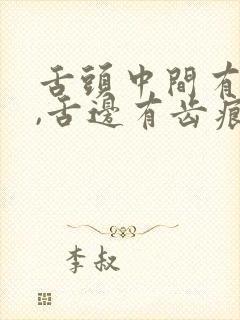 舌頭中間有
,舌邊有齒痕
李叔